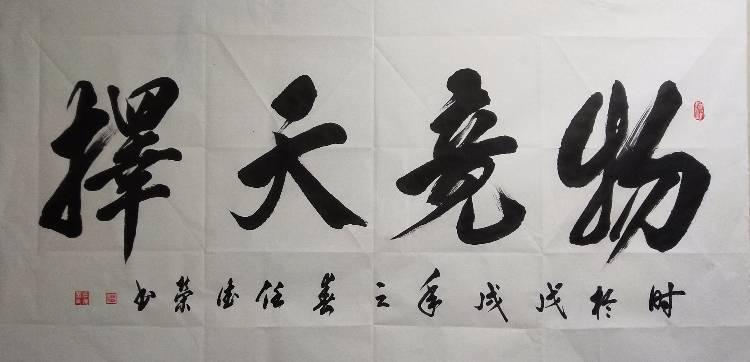 物竞天擇
时於戊戌年之春任德榮书